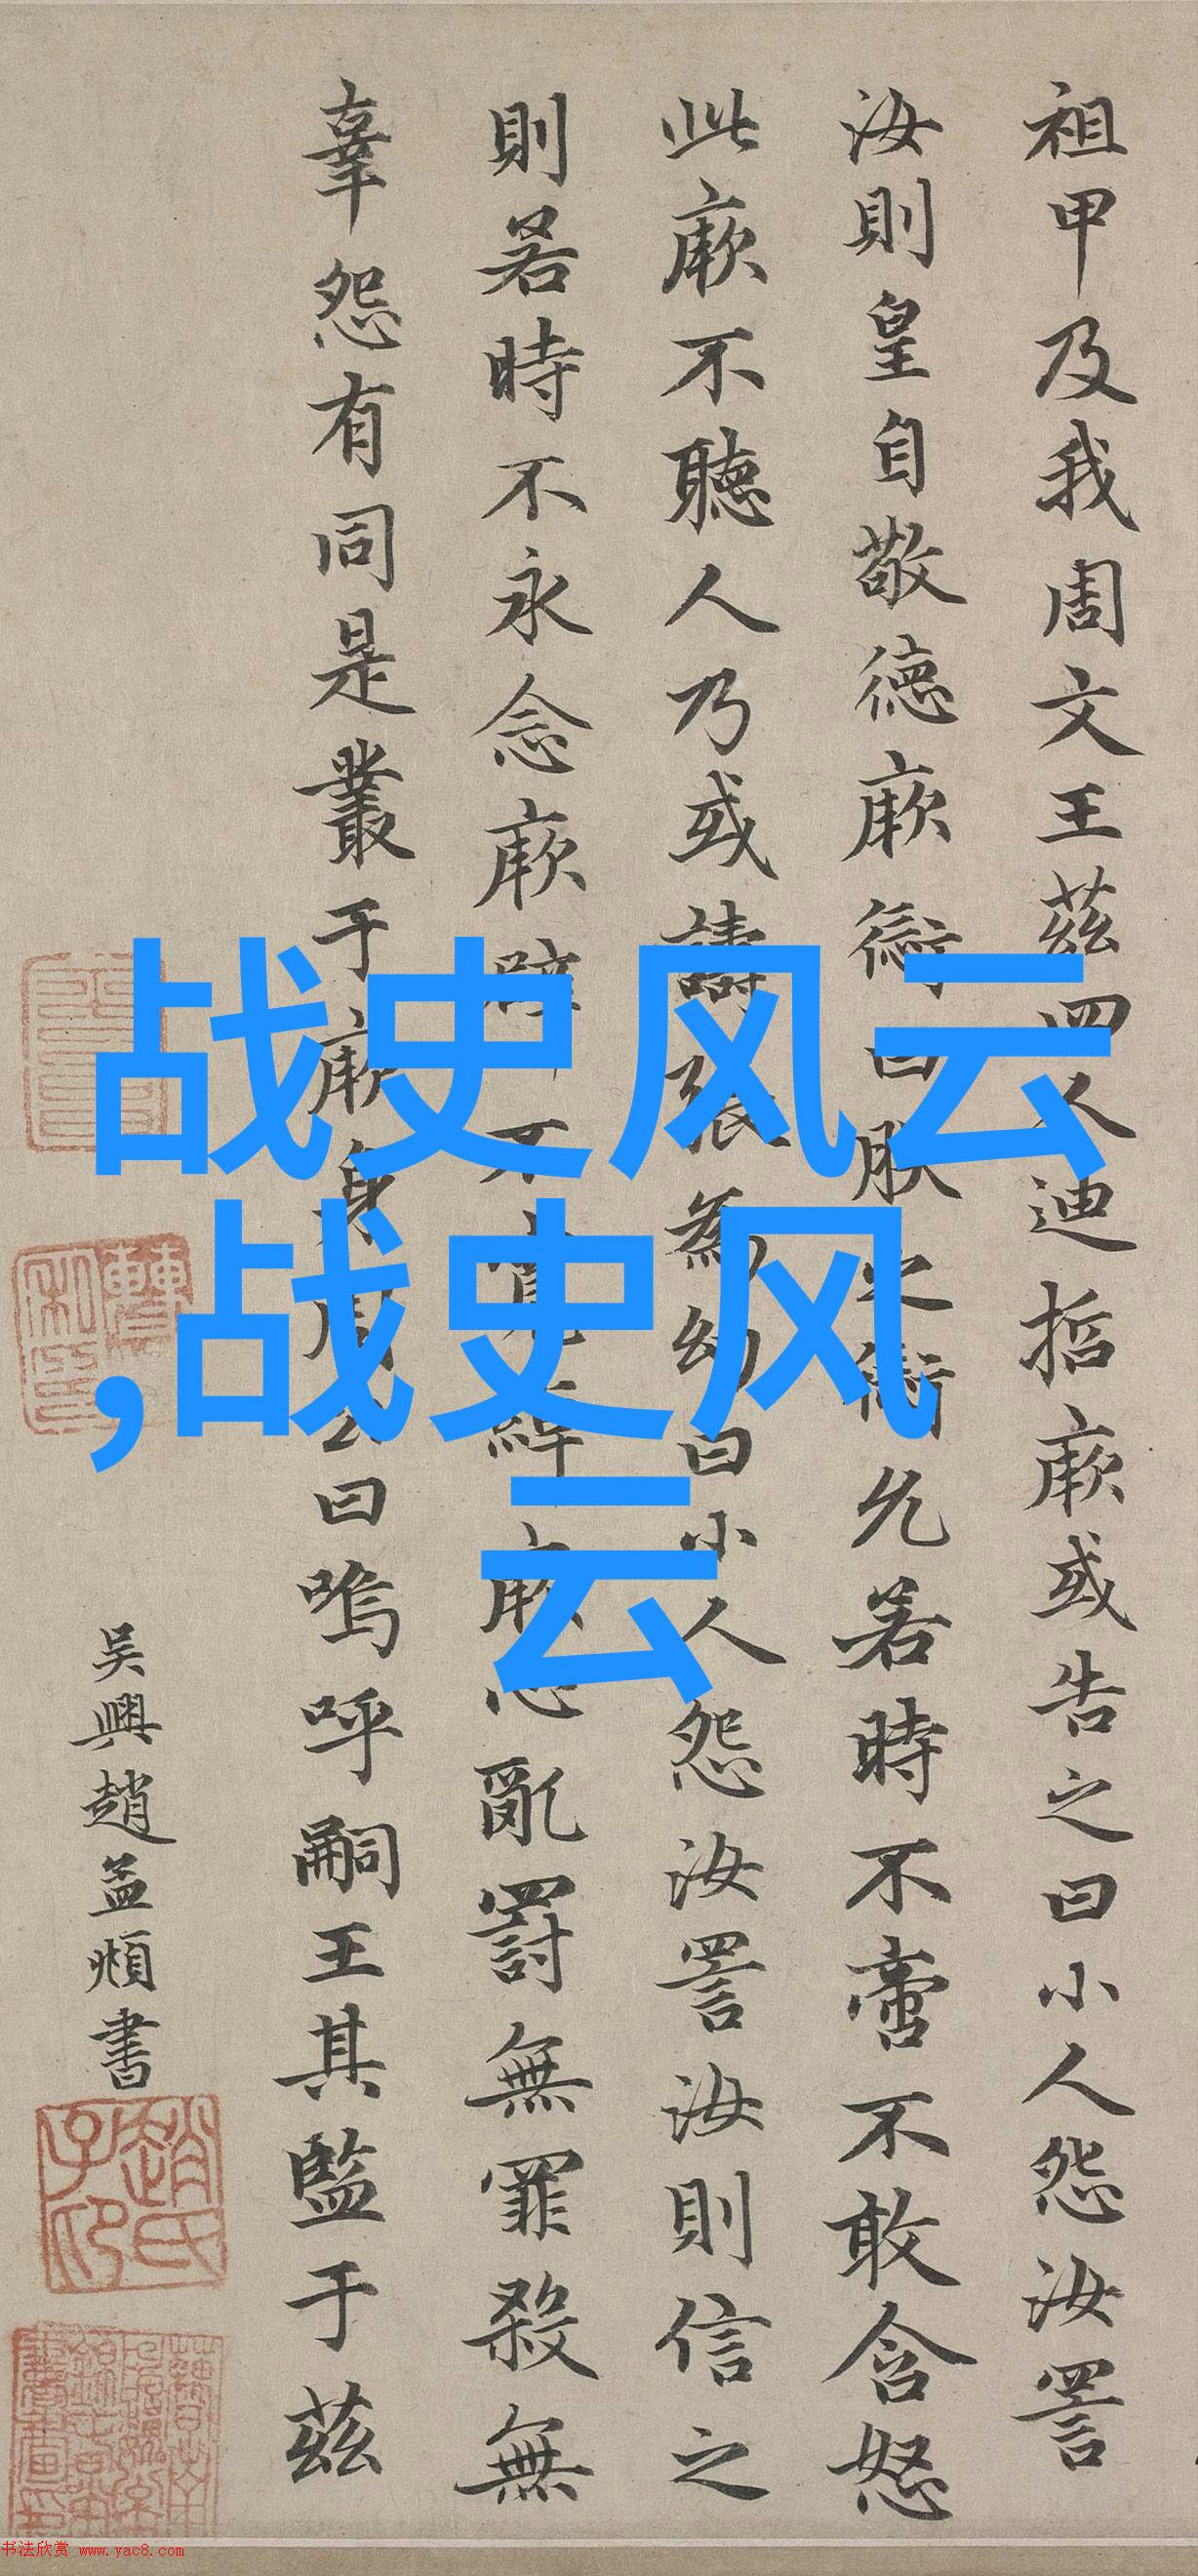 祖甲及我周文王茲四人迪哲厥或告之曰小人怨汝詈
汝則皇自敬德厥愆曰朕之愆允若時不啻不敢含怒
此厥不聽人乃或譸張為幻曰小人怨汝詈汝則信之
則若時不永念厥辟不寬綽厥心亂罰無罪殺無
辜怨有同是叢于厥身周公曰嗚呼嗣王其監于茲
吴興趙孟頫書
趙氏子昂
战史风云
,战史风
云
书法欣赏 www.yac8.com